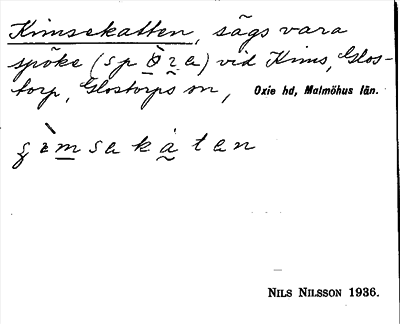 Kimsekatten, sägs vara
spöke (spö̀ze) vid Kims, Glos-
torp, Glostorps sn, Oxie hd, Malmöhus län.
çìmsekaten
NILS NILSSON 1936.